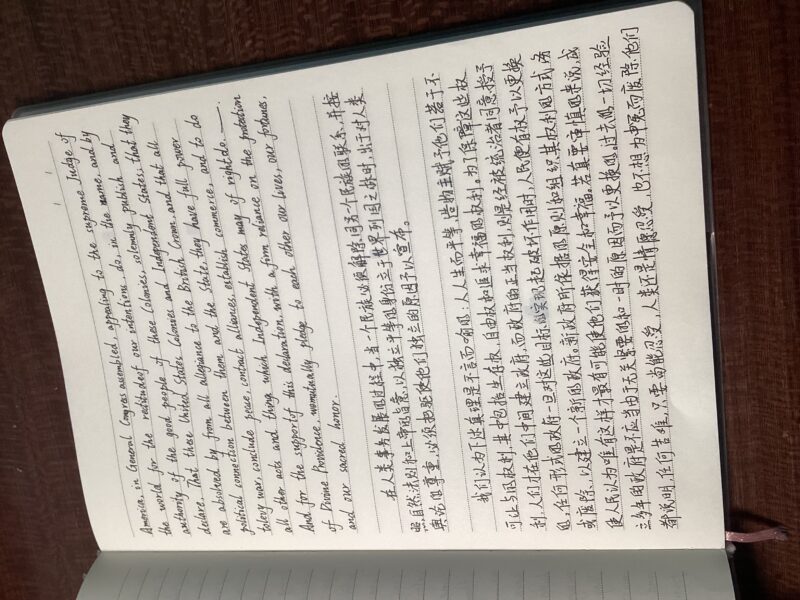 America, in General Congress assembled, appealing to the supreme Judge of
the world for the rectitude of our intentions, do, in the name, and by
authority of the good people of these Colonies, solemnly publish and
declare. That these United States Colonies and Independent States; that they
are absolved by from all allegiance to the British Crown, and that all
political connection between them and the State, they have full power
to levy war, conclude peace, contract alliances, establish commerce, and to do
all other acts and thing which Independent States may of right do. —.
And for the support of this declaration, with a firm reliance on the protection
of Divine Providence, we mutually pledge to each other our loves, our fortunes,
and our sacred honor.
在人类事务发展的过程中,当一个民族必须解除同另一个民族的联系,并按
照自然法则和上帝的旨意,以独立平等的身份立于世界列国之林时,出于对人类
舆论的尊重,必须把驱使他们独立的原因予以宣布。
我们认为下述真理是不言而喻的:人人生而平等,造物主赋予他们若干不
可让与的权利,其中包括生存权、自由权和追求幸福的权利。为了保障这些权
利,人们才在他们中间建立政府,而政府的正当权利,则是经被统治者同意授予
的,任何形式的政府一旦对这些目标的实现起破坏作用时,人民便有权予以更换
或废除,以建立一个新的政府。新政府所依据的原则和组织其权利的方式,务
使人民认为唯有这样才最有可能使他们获得安全和幸福。若真要审慎的来说,成
立多年的政府是不应当由于无关紧要的和一时的原因而予以更换的。过去的一切经验
都说明,任何苦难,只要尚能忍受,人类还是情愿忍受,也不想为申冤而废除他们